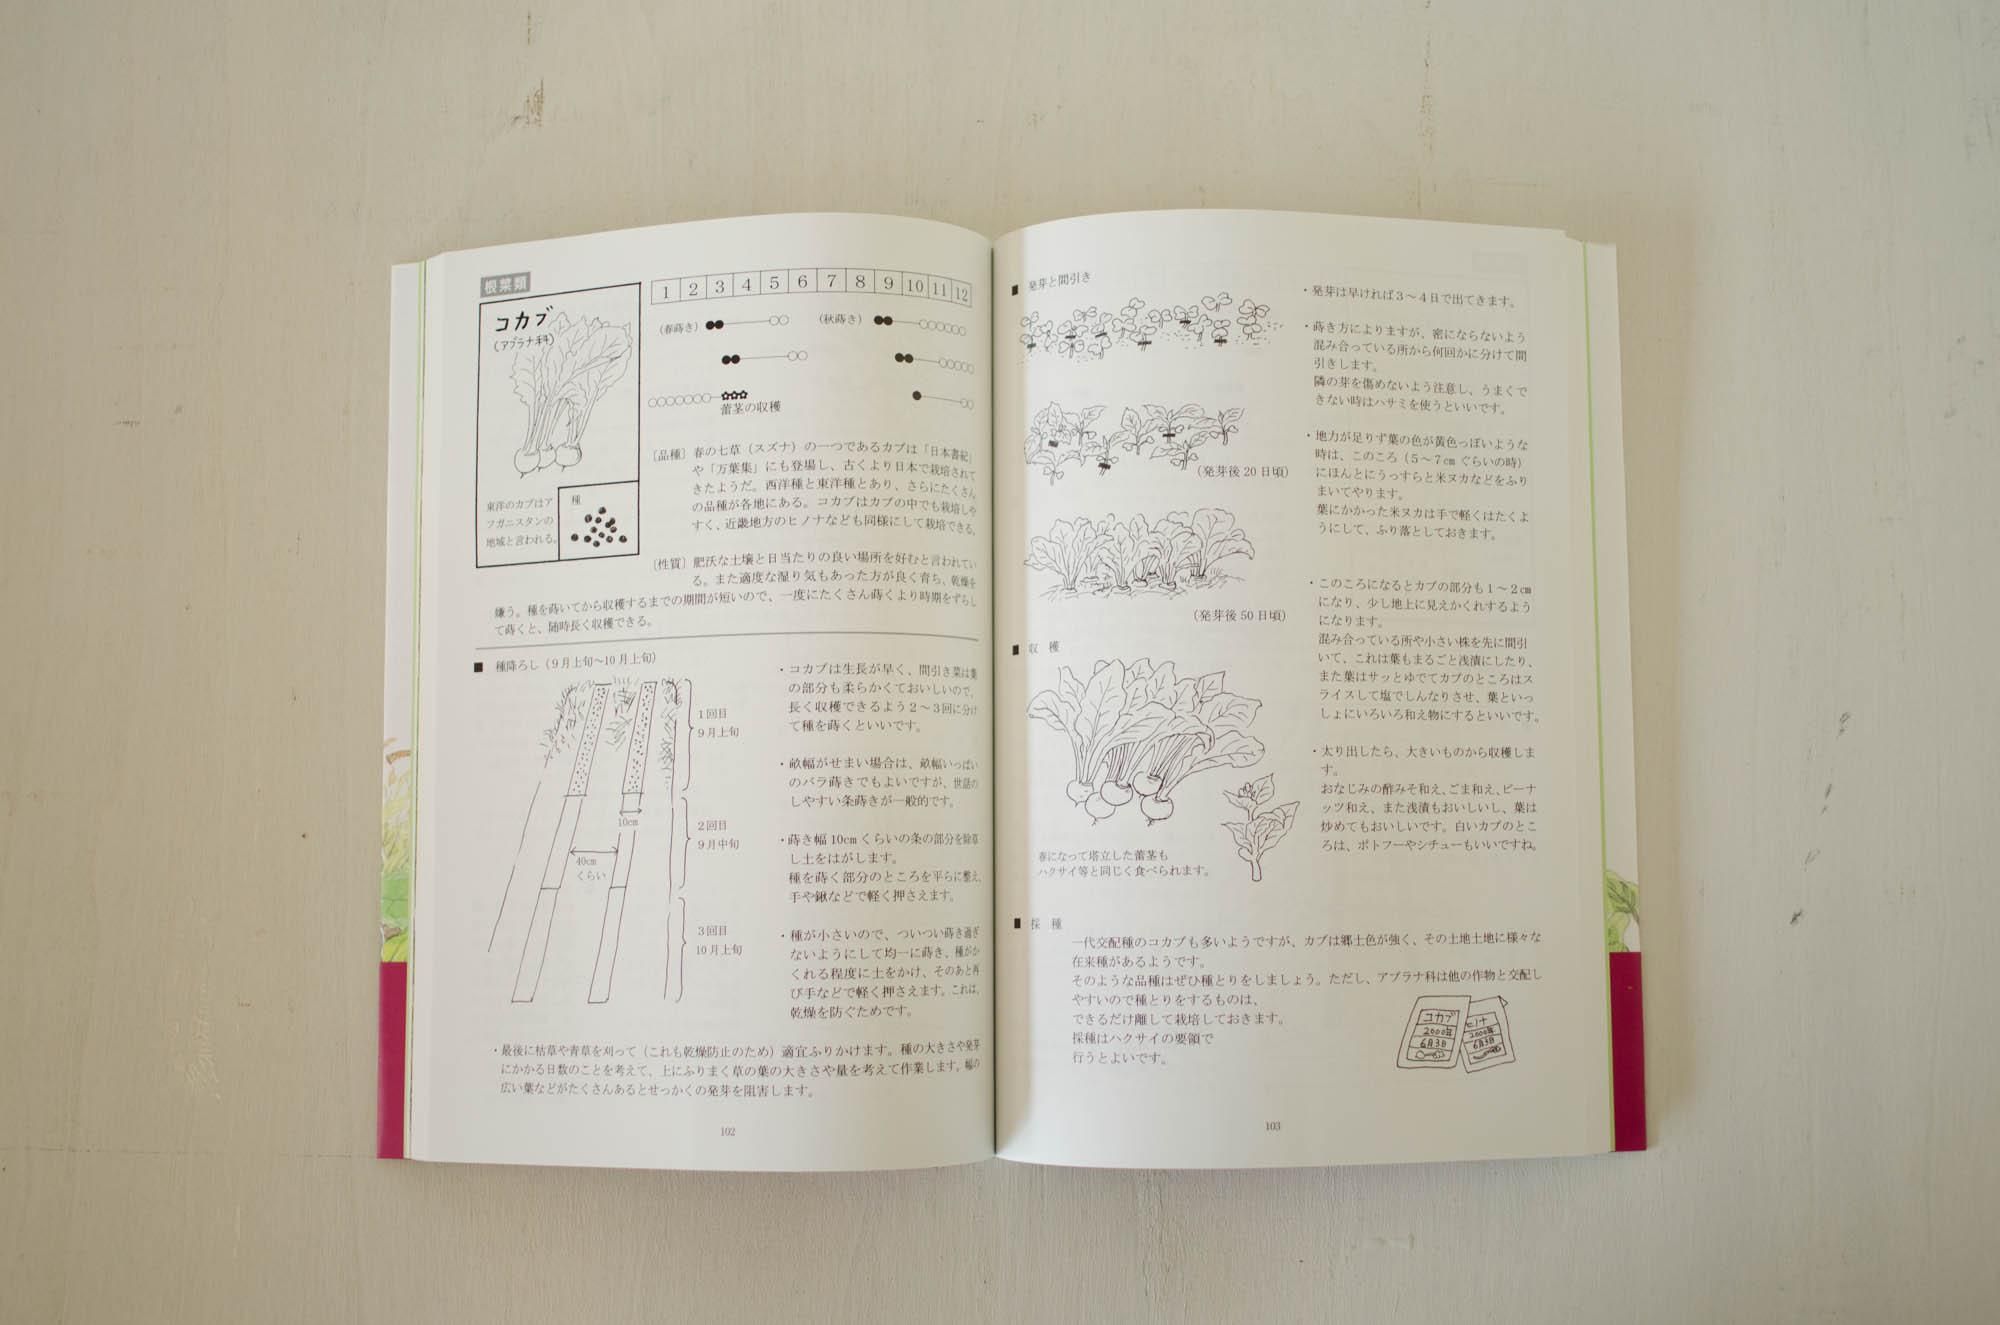 根菜類
コカブ
(アブラナ科)
東洋のカブはア
フガニスタンの
地域と言われる。
種
1 2 3 4 5 6 7 8 9 10 11 12
(春蒔き)
(秋蒔き)
蕾茎の収穫
[品種] 春の七草（スズナ）の一つであるカブは「日本書紀」
や「万葉集」にも登場し、古くより日本で栽培されて
きたようだ。西洋種と東洋種とあり、さらにたくさん
の品種が各地にある。コカブはカブの中でも栽培しや
すく、近畿地方のヒノナなども同様にして栽培できる。
[性質] 肥沃な土壌と日当たりの良い場所を好むと言われてい
る。また適度な湿り気もあった方が良く育ち、乾燥を
嫌う。種を蒔いてから収穫するまでの期間が短いので、一度にたくさん蒔くより時期をずらし
て蒔くと、随時長く収穫できる。
■ 種降ろし（９月上旬〜10月上旬）
1回目
９月上旬
10cm
2回目
９月中旬
40cm
くらい
3回目
10月上旬
・コカブは生長が早く、間引き菜は葉
の部分も柔らかくておいしいので、
長く収穫できるよう２〜３回に分け
て種を蒔くといいです。
・畝幅がせまい場合は、畝幅いっぱい
のバラ蒔きでもよいですが、世話の
しやすい条蒔きが一般的です。
・蒔き幅10cmくらいの条の部分を除草
し土をはがします。
種を蒔く部分のところを平らに整え、
手や鍬などで軽く押さえます。
・種が小さいので、ついつい蒔き過ぎ
ないようにして均一に蒔き、種がか
くれる程度に土をかけ、そのあと再
び手などで軽く押さえます。これは、
乾燥を防ぐためです。
・最後に枯草や青草を刈って（これも乾燥防止のため）適宜ふりかけます。種の大きさや発芽
にかかる日数のことを考えて、上にふりまく草の葉の大きさや量を考えて作業します。幅の
広い葉などがたくさんあるとせっかくの発芽を阻害します。
102
■ 発芽と間引き
・発芽は早ければ３〜４日で出てきます。
・蒔き方によりますが、密にならないよう
混み合っている所から何回かに分けて間
引きします。
隣の芽を傷めないよう注意し、うまくで
きない時はハサミを使うといいです。
(発芽後20日頃)
・地力が足りず葉の色が黄色っぽいような
時は、このころ（５〜７cmぐらいの時）
にほんとにうっすらと米ヌカなどをふり
まいてやります。
葉にかかった米ヌカは手で軽くはたくよ
うにして、ふり落としておきます。
(発芽後50日頃)
・このころになるとカブの部分も１〜２cm
になり、少し地上に見えかくれするよう
になります。
混み合っている所や小さい株を先に間引
いて、これは葉もまるごと浅漬にしたり、
また葉はサッとゆでてカブのところはス
ライスして塩でしんなりさせ、葉といっ
しょにいろいろ和え物にするといいです。
■ 収　穫
・太り出したら、大きいものから収穫しま
す。
おなじみの酢みそ和え、ごま和え、ピーナ
ッツ和え、また浅漬もおいしいし、葉は
炒めてもおいしいです。白いカブのとこ
ろは、ポトフーやシチューもいいですね。
春になって塔立した蕾茎も
ハクサイ等と同じく食べられます。
■ 採　種
一代交配種のコカブも多いようですが、カブは郷土色が強く、その土地土地に様々な
在来種があるようです。
そのような品種はぜひ種とりをしましょう。ただし、アブラナ科は他の作物と交配し
やすいので種とりをするものは、
できるだけ離して栽培しておきます。
採種はハクサイの要領で
行うとよいです。
コカブ
2000年
6月3日
ヒノナ
2000年
6月3日
103